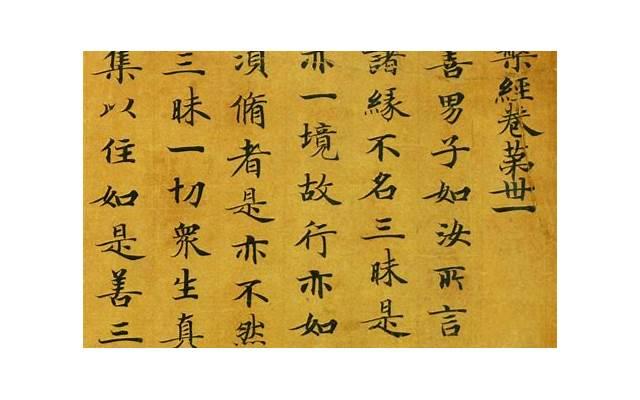 經卷第卅一
喜男子如汝所言
諸緣不名三昧是
亦一境故行亦如
須脩者是亦不然
三昧一切衆生真
集以住如是善三